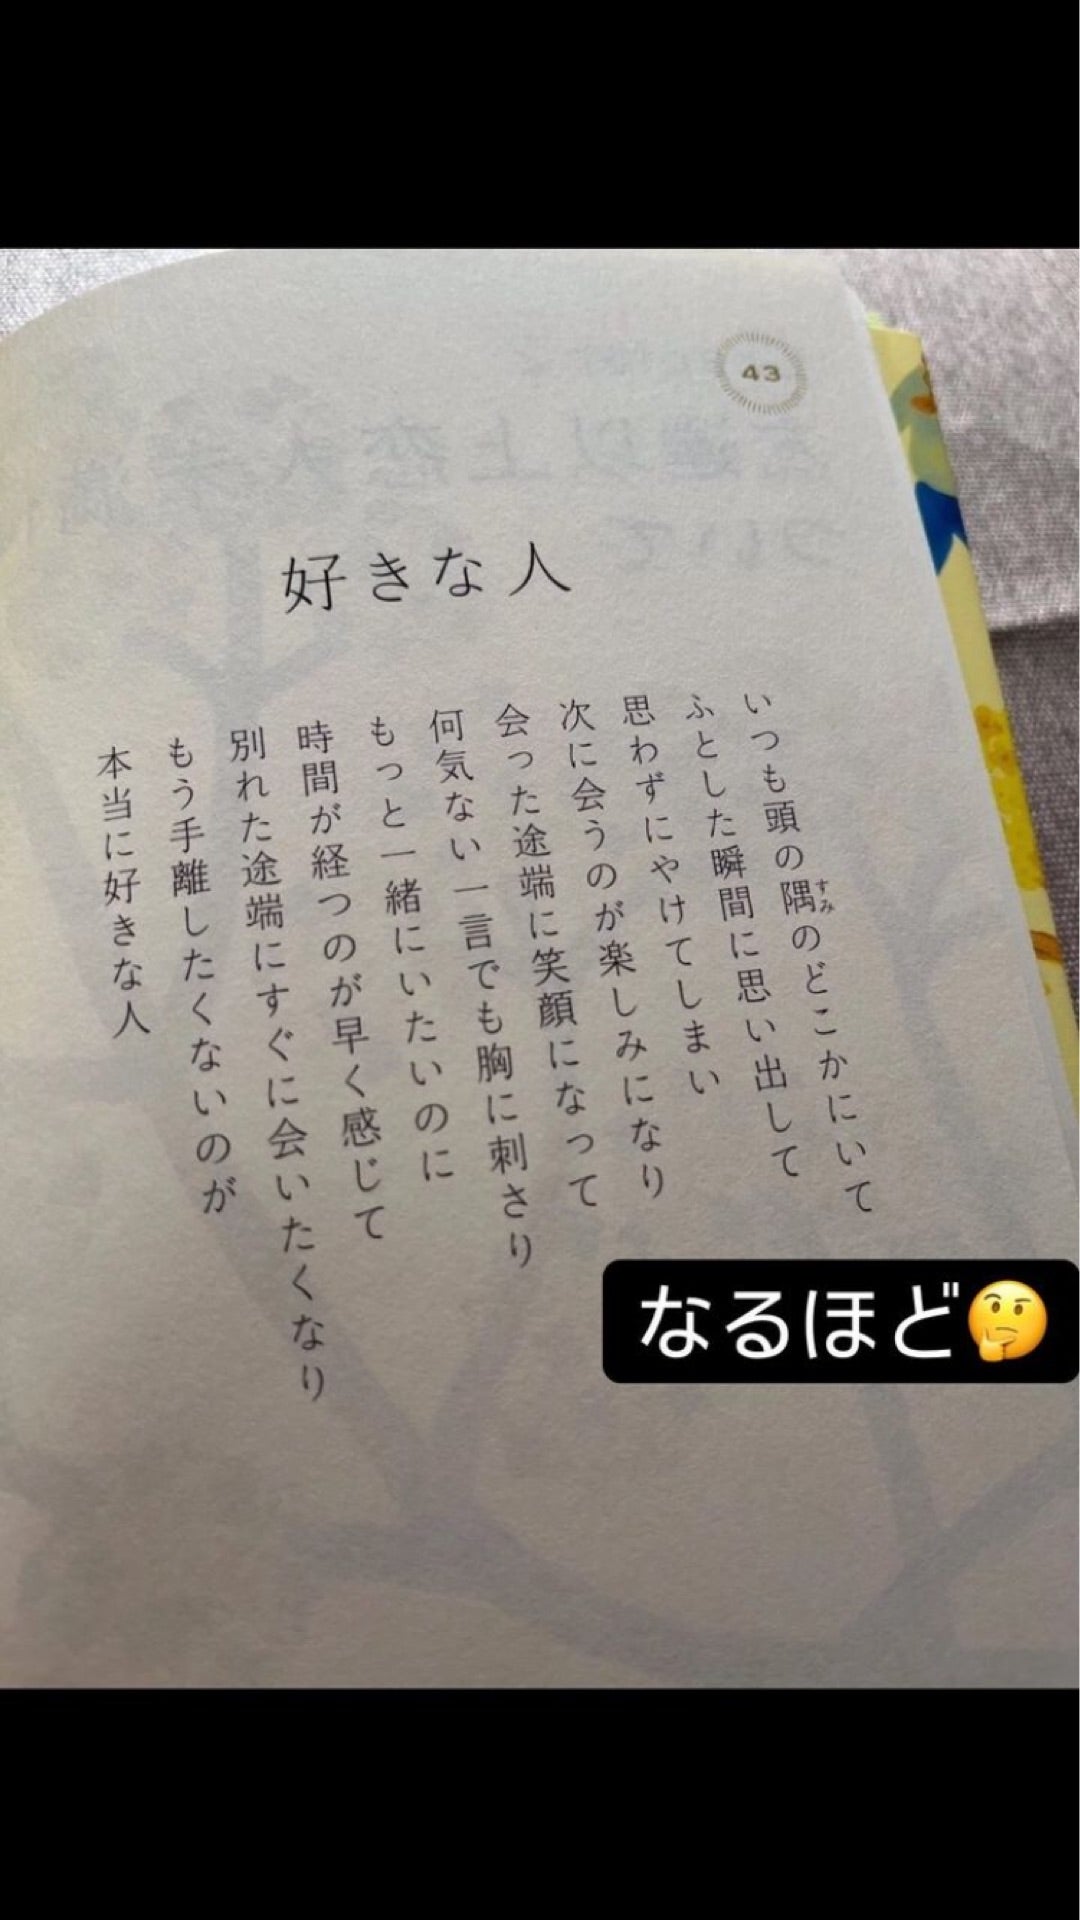 43
好きな人
いつも頭の隅のどこかにいて
すみ
ふとした瞬間に思い出して
思わずにやけてしまい
次に会うのが楽しみになり
会った途端に笑顔になって
何気ない一言でも胸に刺さり
もっと一緒にいたいのに
時間が経つのが早く感じて
別れた途端にすぐに会いたくなり
もう手離したくないのが
本当に好きな人
なるほど🤔